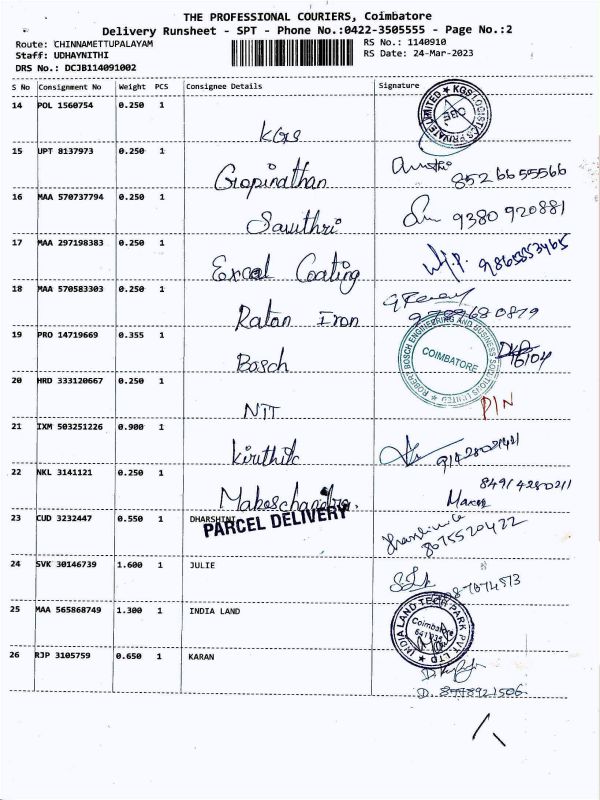 THE PROFESSIONAL COURIERS, Coimbatore
Delivery Runsheet - SPT - Phone No.:0422-3505555 - Page No.:2
Route: CHINNAMETTUPALAYAM RS No.: 1140910
Staff: UDHAYNITHI RS Date: 24-Mar-2023
DRS No.: DCJB114091002
S No Consignment No Weight PCS Consignee Details Signature
14 POL 1560754 0.250 1
KGS
KGS LOGISTICS PRIVATE LIMITED ★ CBE
15 UPT 8137973 0.250 1
Gopinathan 8526655566
16 MAA 570737794 0.250 1
Savithri 9380920881
17 MAA 297198383 0.250 1
Excel Coating
18 MAA 570583303 0.250 1
Ratan Iron
19 PRO 14719669 0.355 1
Bosch
ROBERT BOSCH ENGINEERING AND BUSINESS SOLUTIONS LIMITED ★ COIMBATORE
20 HRD 333120667 0.250 1
NTT PIN
21 IXM 503251226 0.900 1
22 NKL 3141121 0.250 1
23 CUD 3232447 0.550 1 DHARSHINI
PARCEL DELIVERY
8675520422
24 SVK 30146739 1.600 1 JULIE
25 MAA 565868749 1.300 1 INDIA LAND
INDIA LAND TECH PARK PVT. LTD ★ Coimbatore
26 RJP 3105759 0.650 1 KARAN